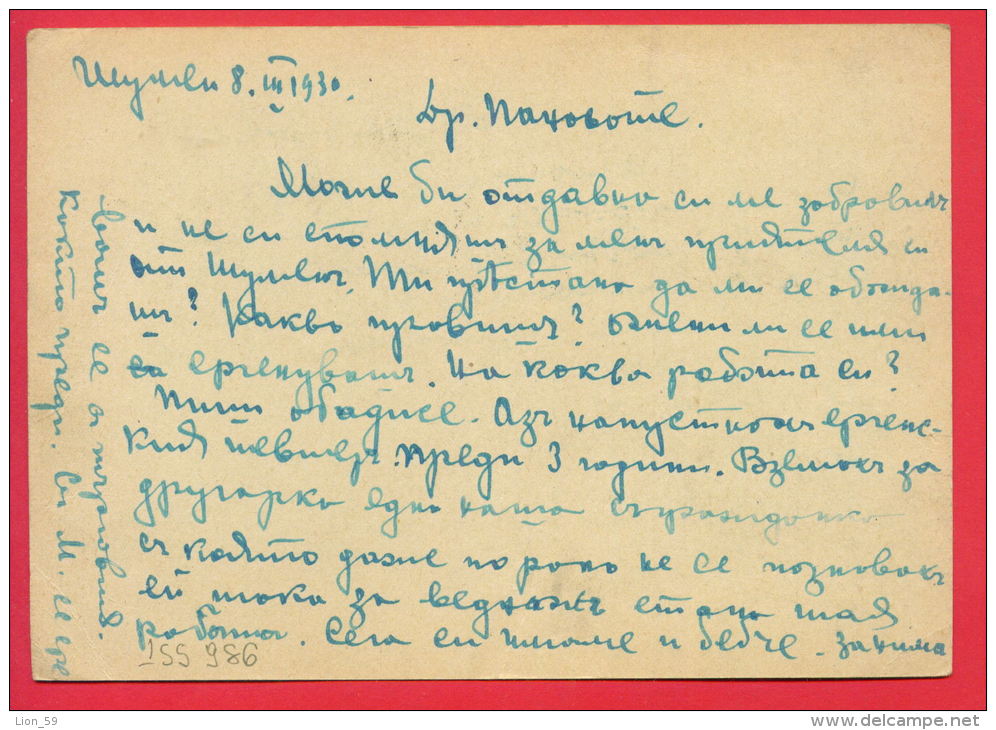 Шуменъ 8. III 1930.
Др. Пановъте.
Може би отдавна си ме забравилъ
и не си спомняшъ за менъ приятеля си
отъ Шуменъ. Ти прѣстана да ми се обажда-
шъ? Какво правишъ? Ожени ли се или
ергенувашъ. На каква работа си?
Пиши обадисе. Азъ напуснахъ ерген-
ския                 преди 3 години. Взехъ за
другарка една наша съгражданка
съ която даже по рано не се познавахъ
ей тока за веднажъ стана тая
работа. Сега си имаме и бебче. Занима
вамъ се съ търговия.
както преди. Съ М. се сре
155 986
Lion_59
www.delcampe.net